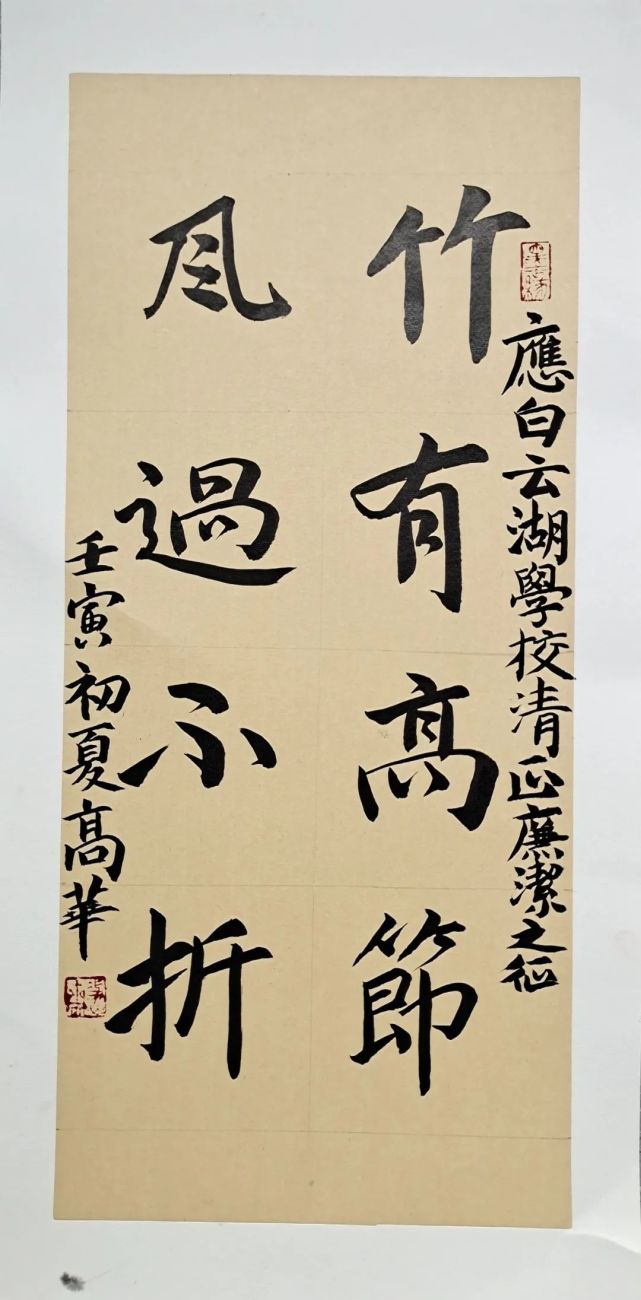 應白云湖學校清正廉潔之征
竹有高節
風過不折
壬寅初夏高華